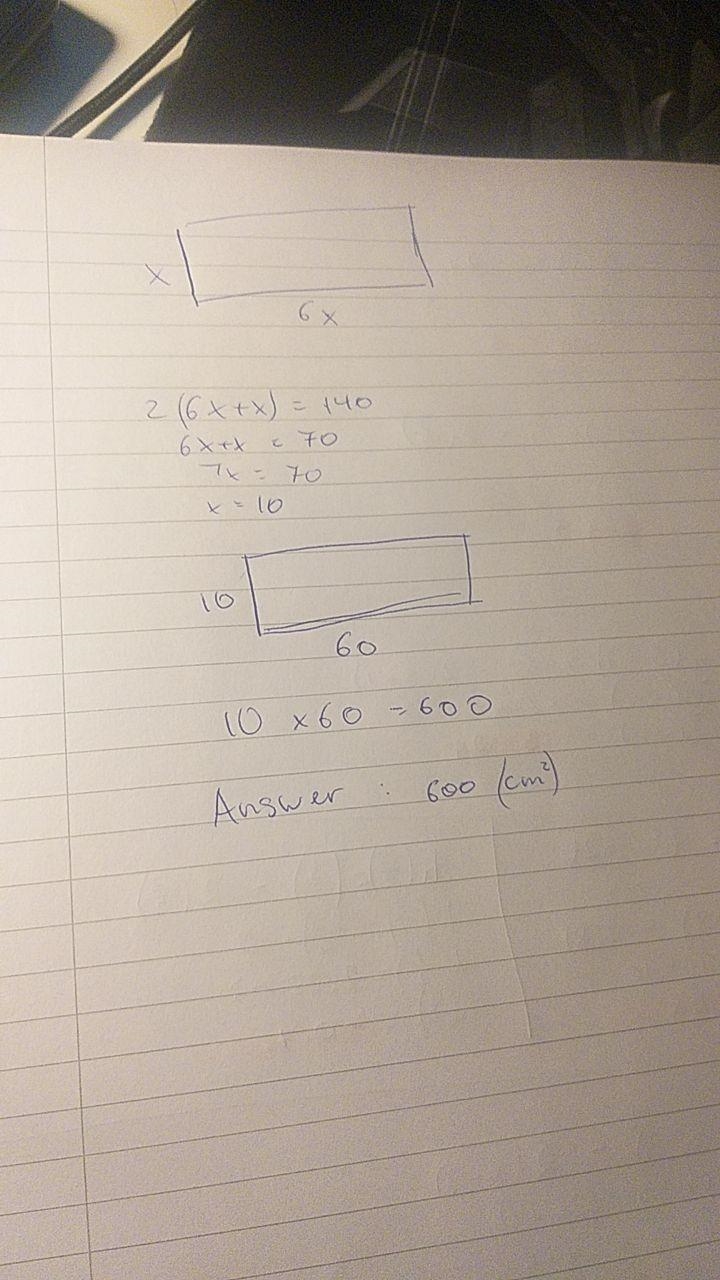 x
6x
2 (6x+x) = 140
6x+x = 70
7x = 70
x = 10
10
60
10 x 60 = 600
Answer : 600 (cm²)